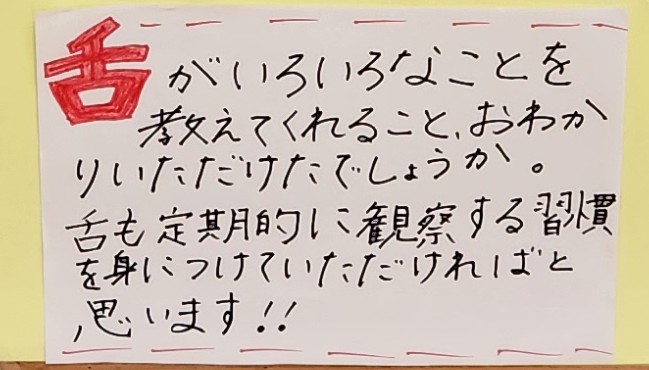 舌がいろいろなことを
教えてくれること、おわか
りいただけたでしょうか。
舌も定期的に観察する習慣
を身につけていただければと
思います!!